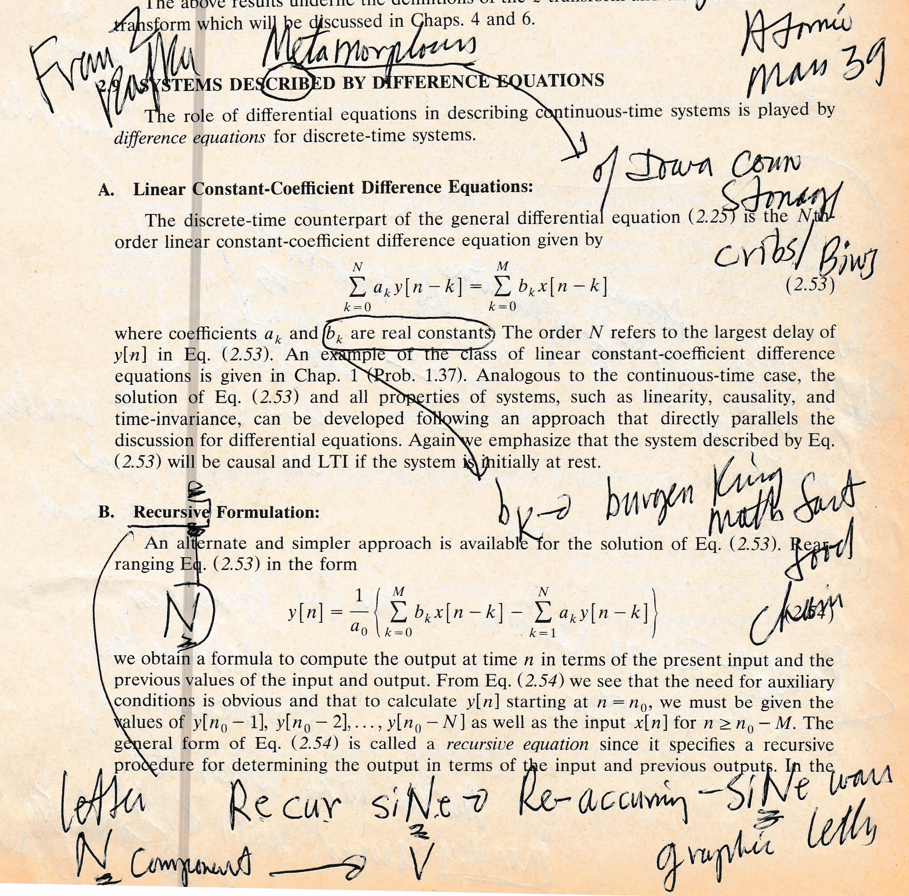 The above results underlie the definitions of the z-transform and
transform which will be discussed in Chaps. 4 and 6.
Metamorphosis
Atomic
man 39
2.9 SYSTEMS DESCRIBED BY DIFFERENCE EQUATIONS
The role of differential equations in describing continuous-time systems is played by
difference equations for discrete-time systems.
of
A. Linear Constant-Coefficient Difference Equations:
The discrete-time counterpart of the general differential equation (2.25) is the Nth-
order linear constant-coefficient difference equation given by
cribs/
∑_{k=0}^{N} a_k y[n − k] = ∑_{k=0}^{M} b_k x[n − k] (2.53)
where coefficients a_k and b_k are real constants. The order N refers to the largest delay of
y[n] in Eq. (2.53). An example of the class of linear constant-coefficient difference
equations is given in Chap. 1 (Prob. 1.37). Analogous to the continuous-time case, the
solution of Eq. (2.53) and all properties of systems, such as linearity, causality, and
time-invariance, can be developed following an approach that directly parallels the
discussion for differential equations. Again we emphasize that the system described by Eq.
(2.53) will be causal and LTI if the system is initially at rest.
bK→ burger King
math fast
food
chain
B. Recursive Formulation:
An alternate and simpler approach is available for the solution of Eq. (2.53). Rear-
ranging Eq. (2.53) in the form
N
y[n] = 1/a_0 { ∑_{k=0}^{M} b_k x[n − k] − ∑_{k=1}^{N} a_k y[n − k] } (2.54)
we obtain a formula to compute the output at time n in terms of the present input and the
previous values of the input and output. From Eq. (2.54) we see that the need for auxiliary
conditions is obvious and that to calculate y[n] starting at n = n_0, we must be given the
values of y[n_0 − 1], y[n_0 − 2], ..., y[n_0 − N] as well as the input x[n] for n ≥ n_0 − M. The
general form of Eq. (2.54) is called a recursive equation since it specifies a recursive
procedure for determining the output in terms of the input and previous outputs. In the
letter Recur siNe→ Re-accuring-SiNe
N Component → V graphic